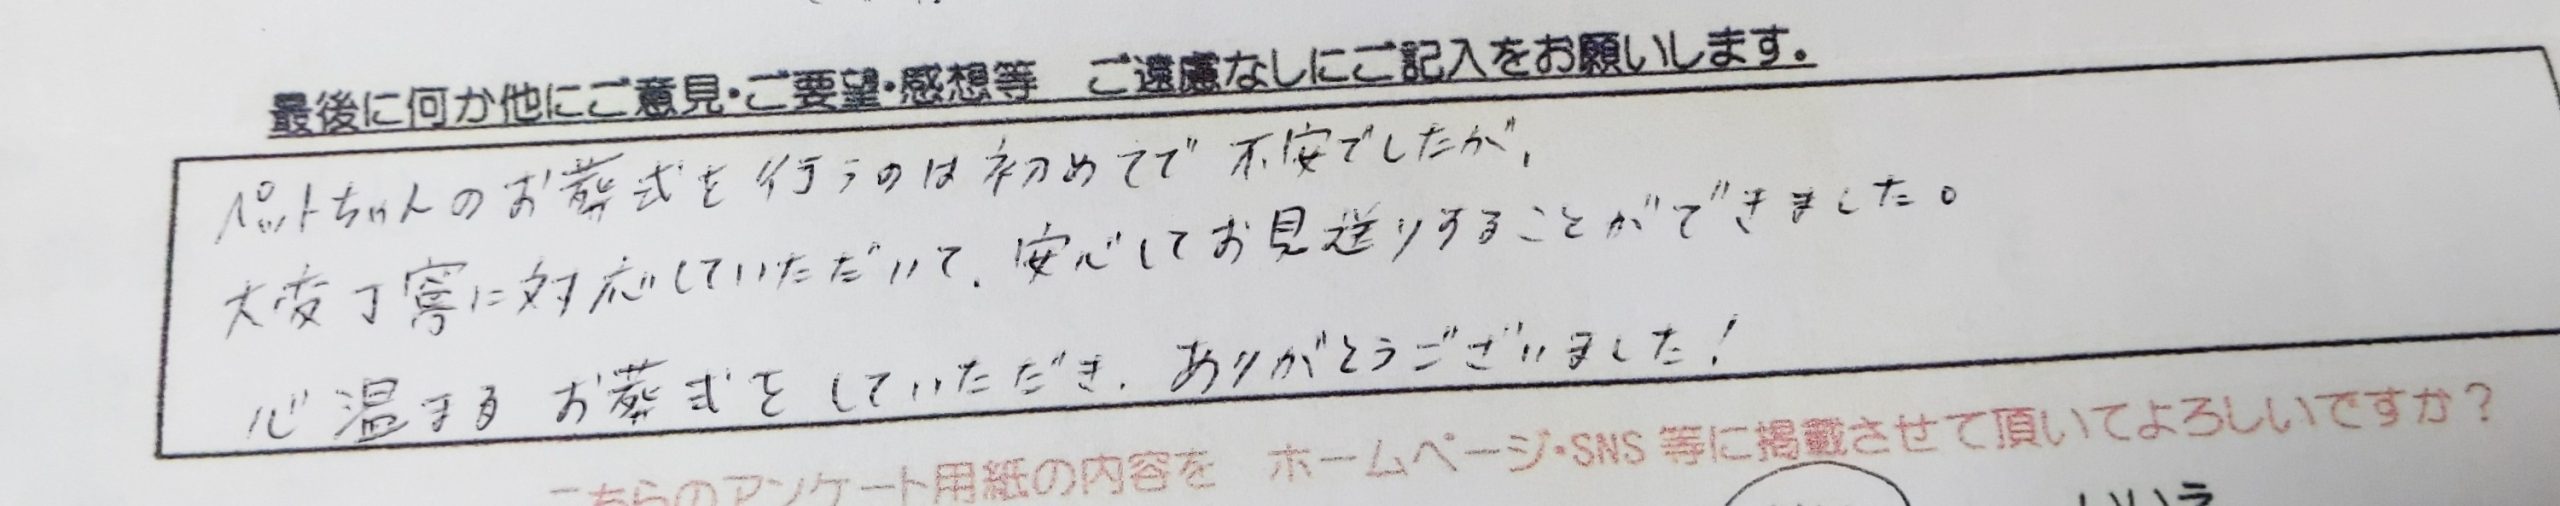 最後に何か他にご意見・ご要望・感想等　ご遠慮なしにご記入をお願いします。
ペットちゃんのお葬式を行うのは初めてで不安でしたが、
大変丁寧に対応していただいて、安心してお見送りすることができました。
心温まるお葬式をしていただき、ありがとうございました！
こちらのアンケート用紙の内容を　ホームページ・SNS等に掲載させて頂いてよろしいですか？
いいえ